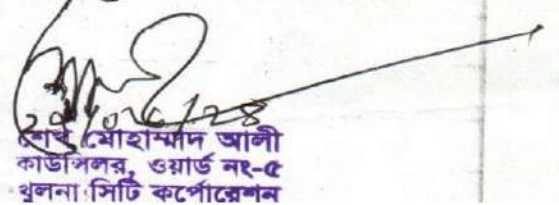 শেখ মোহাম্মাদ আলী
কাউন্সিলর, ওয়ার্ড নং-৫
খুলনা সিটি কর্পোরেশন